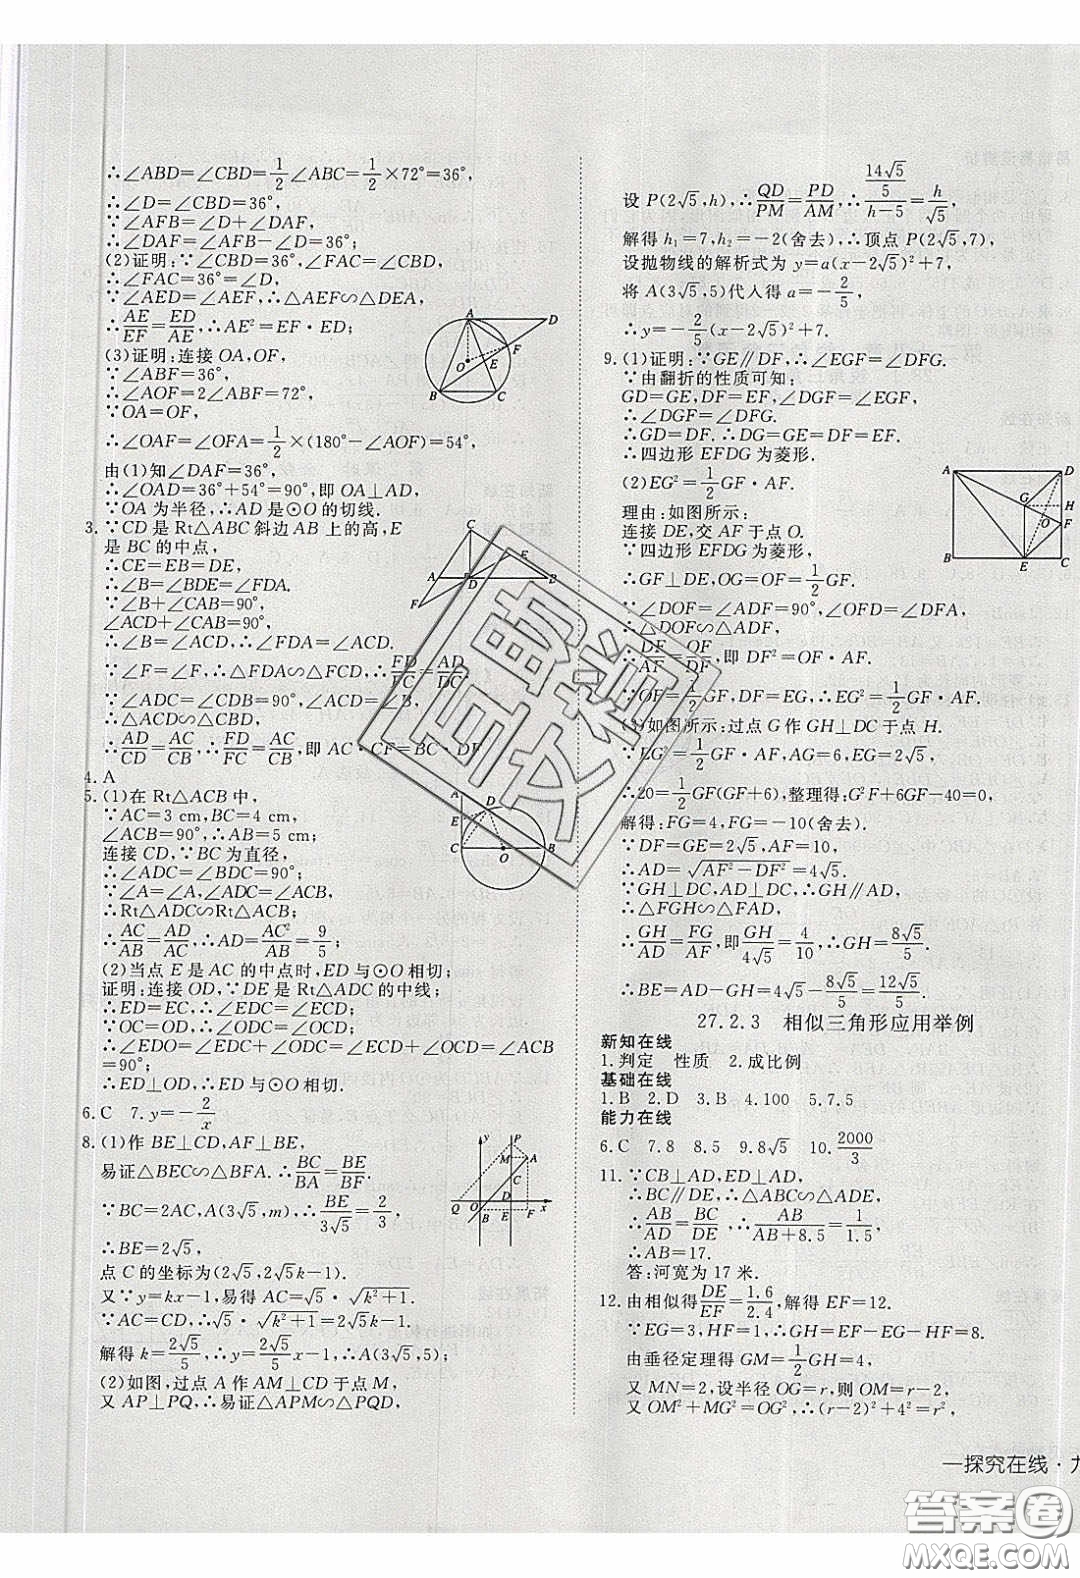 ∴∠ABD=∠CBD=1/2∠ABC=1/2×72°=36°,
∴∠D=∠CBD=36°,
∵∠AFB=∠D+∠DAF,
∴∠DAF=∠AFB-∠D=36°;
(2)证明:∵∠CBD=36°,∠FAC=∠CBD,
∴∠FAC=36°=∠D,
∵∠AED=∠AEF,∴△AEF∽△DEA,
∴AE/EF=ED/AE,∴AE²=EF·ED;
(3)证明:连接OA,OF,
∵∠ABF=36°,
∴∠AOF=2∠ABF=72°,
∵OA=OF,
∴∠OAF=∠OFA=1/2×(180°-∠AOF)=54°,
由(1)知∠DAF=36°,
∴∠OAD=36°+54°=90°,即OA⊥AD,
∵OA为半径,∴AD是⊙O的切线.
3.∵CD是Rt△ABC斜边AB上的高,E
是BC的中点,
∴CE=EB=DE,
∴∠B=∠BDE=∠FDA.
∵∠B+∠CAB=90°,
∠ACD+∠CAB=90°,
∴∠B=∠ACD,∴∠FDA=∠ACD.
∵∠F=∠F,∴△FDA∽△FCD,∴FD/FC=AD/CD.
∵∠ADC=∠CDB=90°,∠B=∠ACD,
∴△ACD∽△CBD,
∴AD/CD=AC/CB,∴FD/FC=AC/CB,即AC·CF=BC·DF.
4.A
5.(1)在Rt△ACB中,
∵AC=3 cm,BC=4 cm,
∠ACB=90°,∴AB=5 cm;
连接CD,∵BC为直径,
∴∠ADC=∠BDC=90°;
∵∠A=∠A,∠ADC=∠ACB,
∴Rt△ADC∽Rt△ACB,
∴AC/AB=AD/AC,∴AD=AC²/AB=9/5;
(2)当点E是AC的中点时,ED与⊙O相切;
证明:连接OD,∵DE是Rt△ADC的中线;
∴ED=EC,∴∠EDC=∠ECD;
∵OC=OD,∴∠ODC=∠OCD;
∴∠EDO=∠EDC+∠ODC=∠ECD+∠OCD=∠ACB
=90°;
∴ED⊥OD,∴ED与⊙O相切.
6.C 7.y=-2/x
8.(1)作BE⊥CD,AF⊥BE,
易证△BEC∽△BFA.∴BC/BA=BE/BF.
∵BC=2AC,A(3√5,m),∴BE/3√5=2/3,
∴BE=2√5,
点C的坐标为(2√5,2√5k-1).
又∵y=kx-1,易得AC=√5·√(k²+1).
∵AC=CD,∴√5·√(k²+1)=2√5k-1.
解得k=2√5/5,∴y=2√5/5x-1,∴A(3√5,5);
(2)如图,过点A作AM⊥CD于点M,
又AP⊥PQ,∴易证△APM∽△PQD,
设P(2√5,h),∴QD/PM=PD/AM,∴(14√5/5)/(h-5)=h/√5,
解得h₁=7,h₂=-2(舍去),∴顶点P(2√5,7),
设抛物线的解析式为y=a(x-2√5)²+7,
将A(3√5,5)代入得a=-2/5,
∴y=-2/5(x-2√5)²+7.
9.(1)证明:∵GE∥DF,∴∠EGF=∠DFG.
∵由翻折的性质可知:
GD=GE,DF=EF,∠DGF=∠EGF,
∴∠DGF=∠DFG.
∴GD=DF.∴DG=GE=DF=EF.
∴四边形EFDG为菱形.
(2)EG²=1/2GF·AF.
理由:如图所示:
连接DE,交AF于点O.
∵四边形EFDG为菱形,
∴GF⊥DE,OG=OF=1/2GF.
∵∠DOF=∠ADF=90°,∠OFD=∠DFA,
∴△DOF∽△ADF.
∴DF/AF=OF/DF,即DF²=OF·AF.
∵OF=1/2GF,DF=EG,∴EG²=1/2GF·AF.
(3)如图所示:过点G作GH⊥DC于点H.
∵EG²=1/2GF·AF,AG=6,EG=2√5,
∴20=1/2GF(GF+6),整理得:G²F+6GF-40=0,
解得:FG=4,FG=-10(舍去).
∵DF=GE=2√5,AF=10,
∴AD=√(AF²-DF²)=4√5.
∵GH⊥DC,AD⊥DC,∴GH∥AD.
∴△FGH∽△FAD.
∴GH/AD=FG/AF,即GH/4√5=4/10,∴GH=8√5/5.
∴BE=AD-GH=4√5-8√5/5=12√5/5.
27.2.3 相似三角形应用举例
新知在线
1.判定 性质 2.成比例
基础在线
1.B 2.D 3.B 4.100 5.7.5
能力在线
6.C 7.8 8.5 9.8√5 10.2000/3
11.∵CB⊥AD,ED⊥AD,
∴BC∥DE,∴△ABC∽△ADE,
∴AB/AD=BC/DE,∴AB/(AB+8.5)=1/1.5,
∴AB=17.
答:河宽为17米.
12.由相似得DE/EF=1.6/2.4,解得EF=12.
∵EG=3,HF=1,∴GH=EF-EG-HF=8.
由垂径定理得GM=1/2GH=4,
又MN=2,设半径OG=r,则OM=r-2,
又OM²+MG²=OG²,∴(r-2)²+4²=r²,
一探究在线·九
答案圈
MXQE.COM